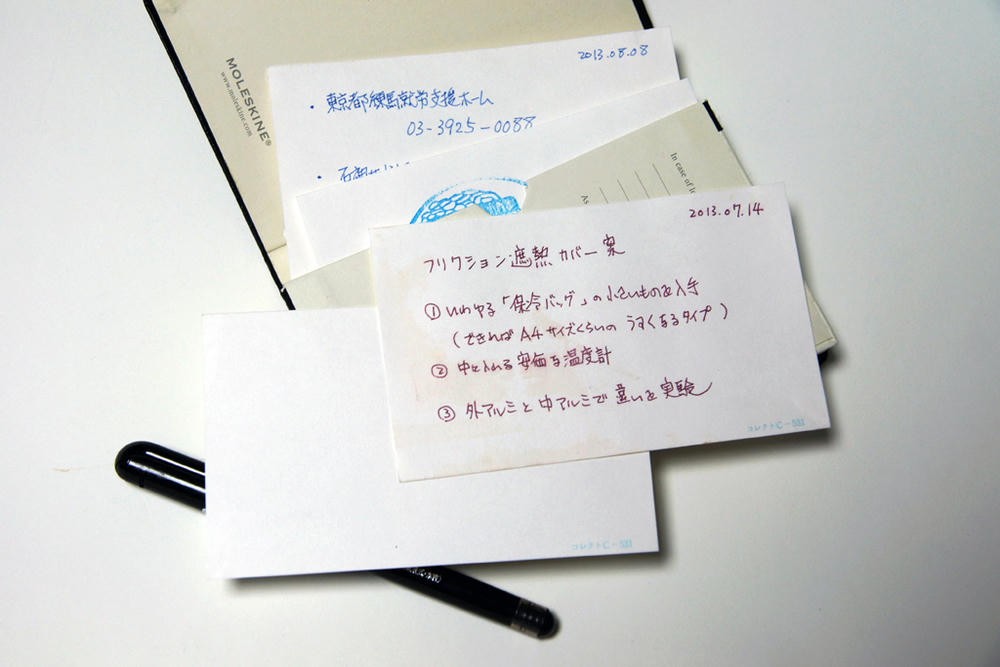 MOLESKINE®
www.moleskine.com
2013.08.08
・東京都練馬就労支援ホーム
03-3925-0088
In case of
As
2013.07.14
フリクション遮熱カバー案
① いわゆる「保冷バッグ」の小さいものを入手
(できればA4サイズくらいの うすくなるタイプ)
② 中に入れる安価な温度計
③ 外アルミと中アルミで違いを実験
コレクトC-531
コレクトC-531